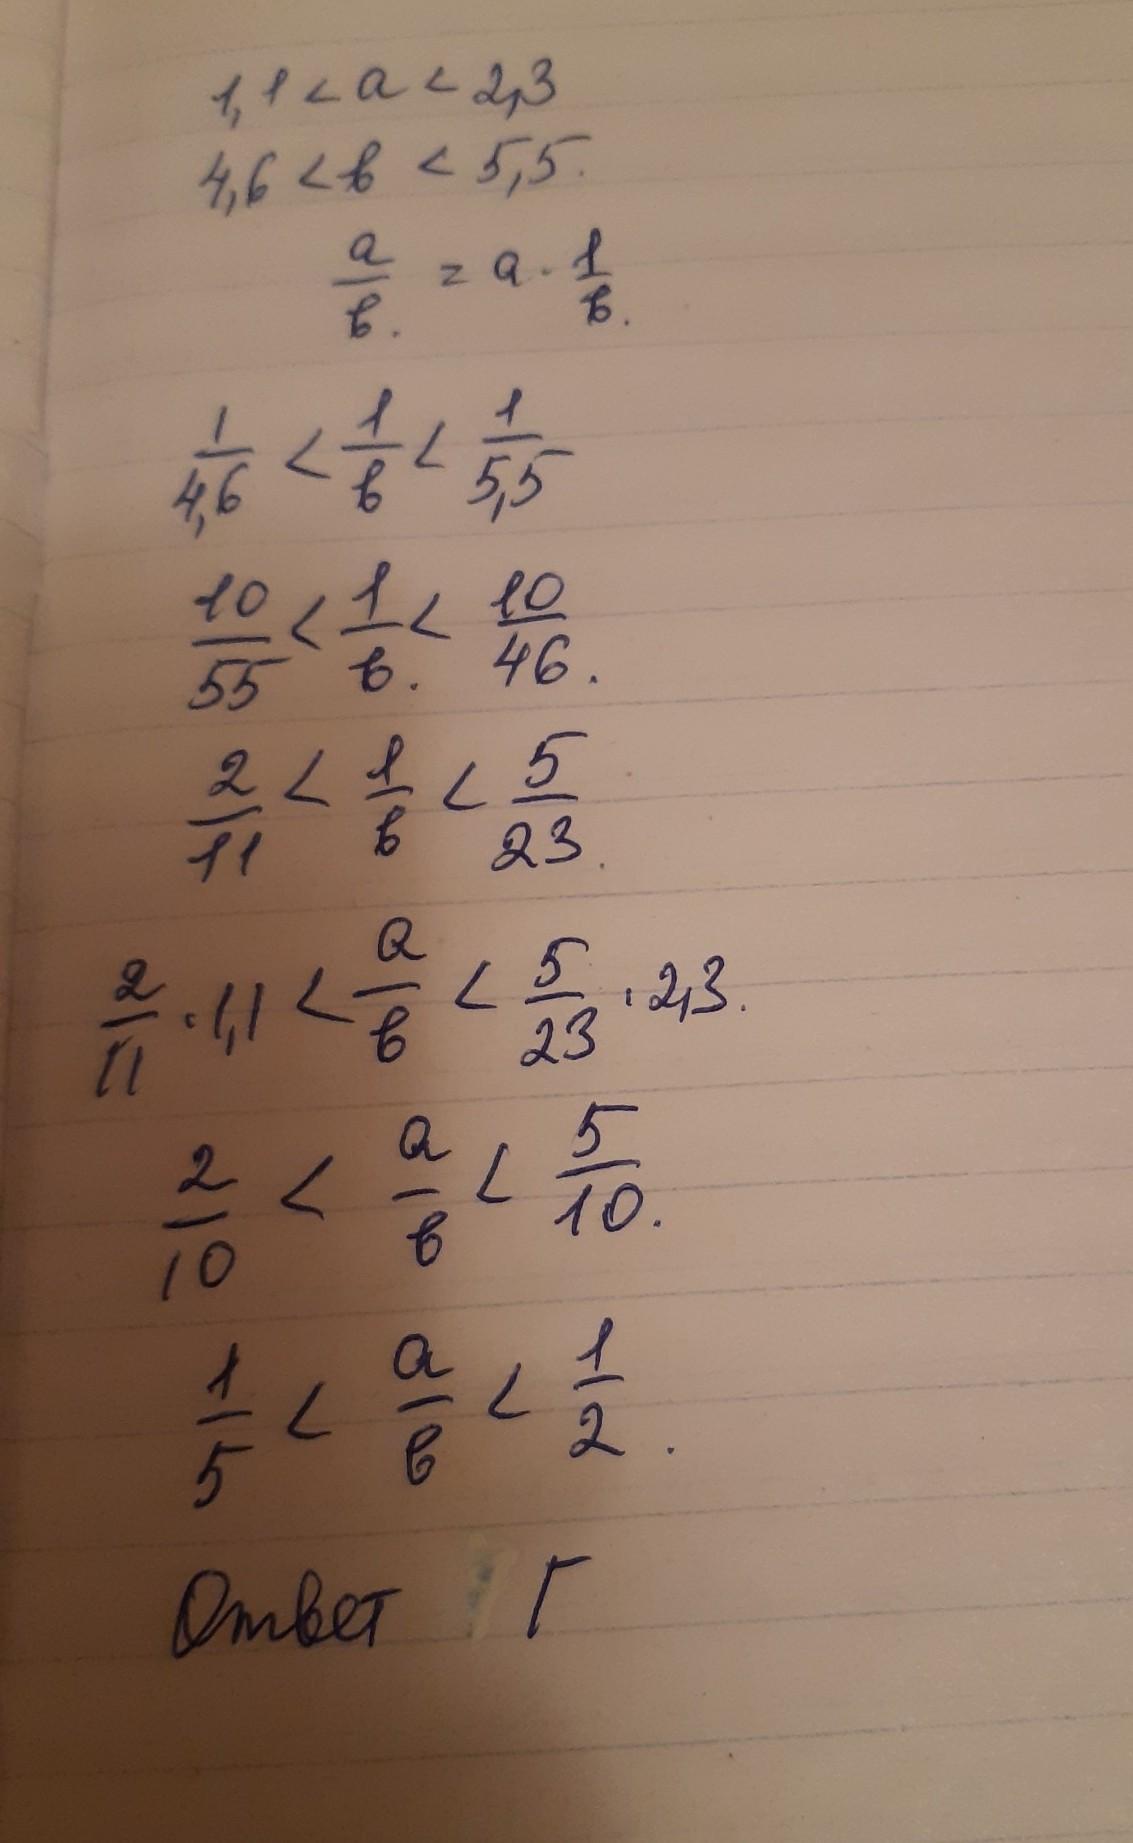 1,1 < a < 2,3
4,6 < в < 5,5.
a/в. = a · 1/в.
1/4,6 < 1/в < 1/5,5
10/55 < 1/в. < 10/46.
2/11 < 1/в < 5/23.
2/11 · 1,1 < a/в < 5/23 · 2,3.
2/10 < a/в < 5/10.
1/5 < a/в < 1/2.
Ответ Г